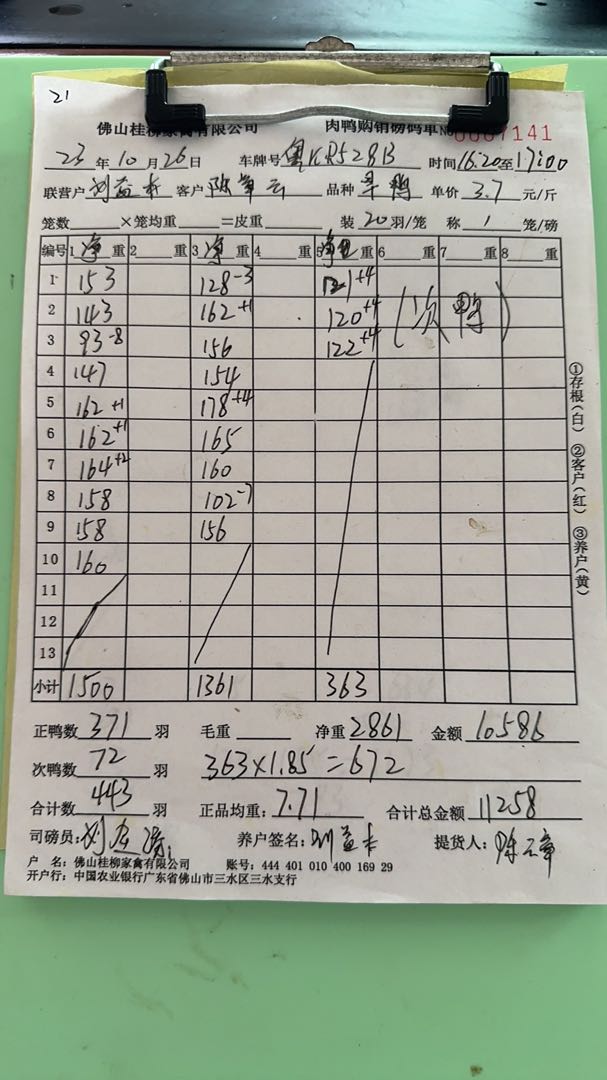 21
佛山桂柳家禽有限公司 肉鸭购销磅码单 № 0007141
23 年 10 月 26 日 车牌号 粤KR528B 时间 16:20 至 17:00
联营户 刘益本 客户 陈章云 品种 旱鸭 单价 3.7 元/斤
笼数 ×笼均重 =皮重 装 20 羽/笼 称 1 笼/磅
编号 1 净 重 2 重 3 净 重 4 重 5 净 重 6 重 7 重 8 重
1 153 128 -3 121 +4
2 143 162 +1 120 +4 (次鸭)
3 93 -8 156 122 +4
4 147 154
5 162 +1 178 +4
6 162 +1 165
7 164 +2 160
8 158 102 -7
9 158 156
10 160
11
12
13
小计 1500 1361 363
①存根(白) ②客户(红) ③养户(黄)
正鸭数 371 羽 毛重 净重 2861 金额 10586
次鸭数 72 羽 363×1.85=672
合计数 443 羽 正品均重: 7.71 合计总金额 11258
司磅员: 养户签名: 刘益本 提货人:
户 名: 佛山桂柳家禽有限公司 账号: 444 401 010 400 169 29
开户行: 中国农业银行广东省佛山市三水区三水支行